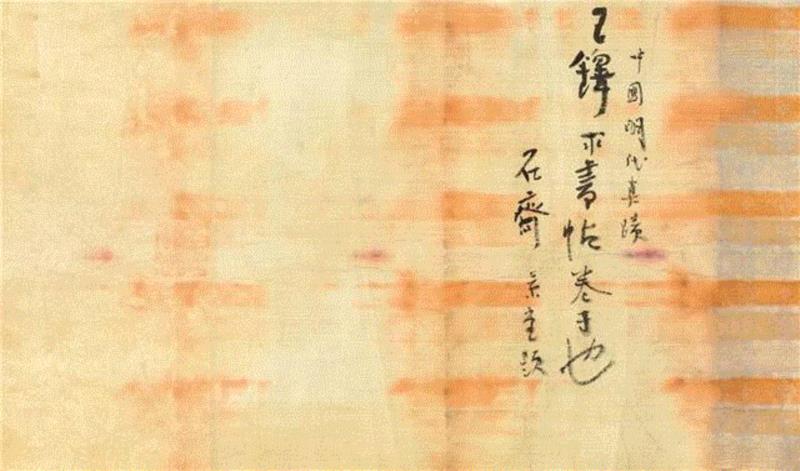 中國明代真蹟
王鐸求書帖卷子也
石齋 景堂題